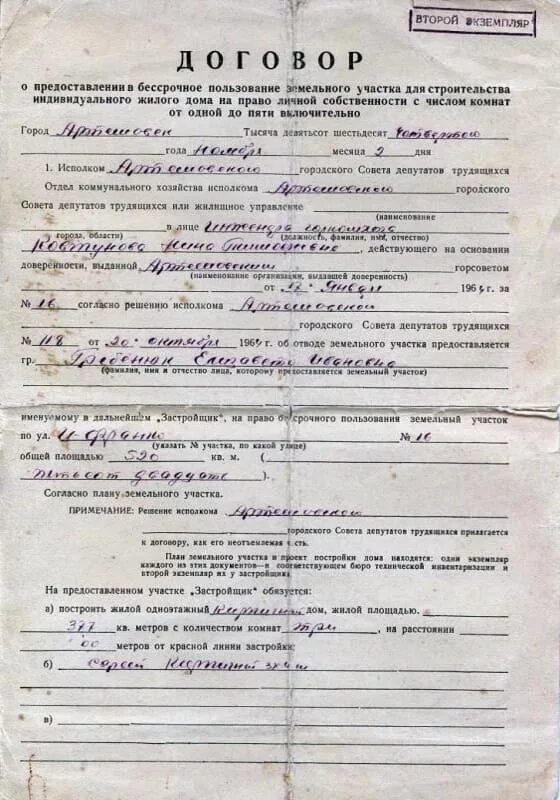 ВТОРОЙ ЭКЗЕМПЛЯР
ДОГОВОР
о предоставлении в бессрочное пользование земельного участка для строительства
индивидуального жилого дома на право личной собственности с числом комнат
от одной до пяти включительно
Город Артемовск Тысяча девятьсот шестьдесят четвертого
года ноября месяца 2 дня
1. Исполком Артемовского городского Совета депутатов трудящихся
Отдел коммунального хозяйства исполкома Артемовского городского
Совета депутатов трудящихся или жилищное управление
(наименование
в лице инженера
города, области) (должность, фамилия, имя, отчество)
Ковтунова Нина, действующего на основании
доверенности, выданной Артемовским горсоветом
(наименование организации, выдавшей доверенность)
от 17 Января 1964 г. за
№ 16 согласно решению исполкома Артемовской
городского Совета депутатов трудящихся
№ 118 от 20 октября 1964 г. об отводе земельного участка предоставляется
гр. Гребенюк Елизавета Ивановна
(фамилия, имя и отчество лица, которому предоставляется земельный участок)
именуемому в дальнейшем „Застройщик", на право бессрочного пользования земельный участок
по ул. И-Франко № 16
(указать № участка, по какой улице)
общей площадью 520 кв. м. (
пятьсот двадцать ).
Согласно плану земельного участка.
ПРИМЕЧАНИЕ: Решение исполкома Артемовской
городского Совета депутатов трудящихся прилагается
к договору, как его неотъемлемая есть.
План земельного участка и проект постройки дома находятся: один экземпляр
каждого из этих документов—в соответствующем бюро технической инвентаризации и
второй экземпляр их у застройщика.
На предоставленном участке „Застройщик" обязуется:
а) построить жилой одноэтажный Кирпичный дом, жилой площадью.
377 кв. метров с количеством комнат три, на расстоянии
00 метров от красной линии застройки;
б) сарай Кирпичный
в)